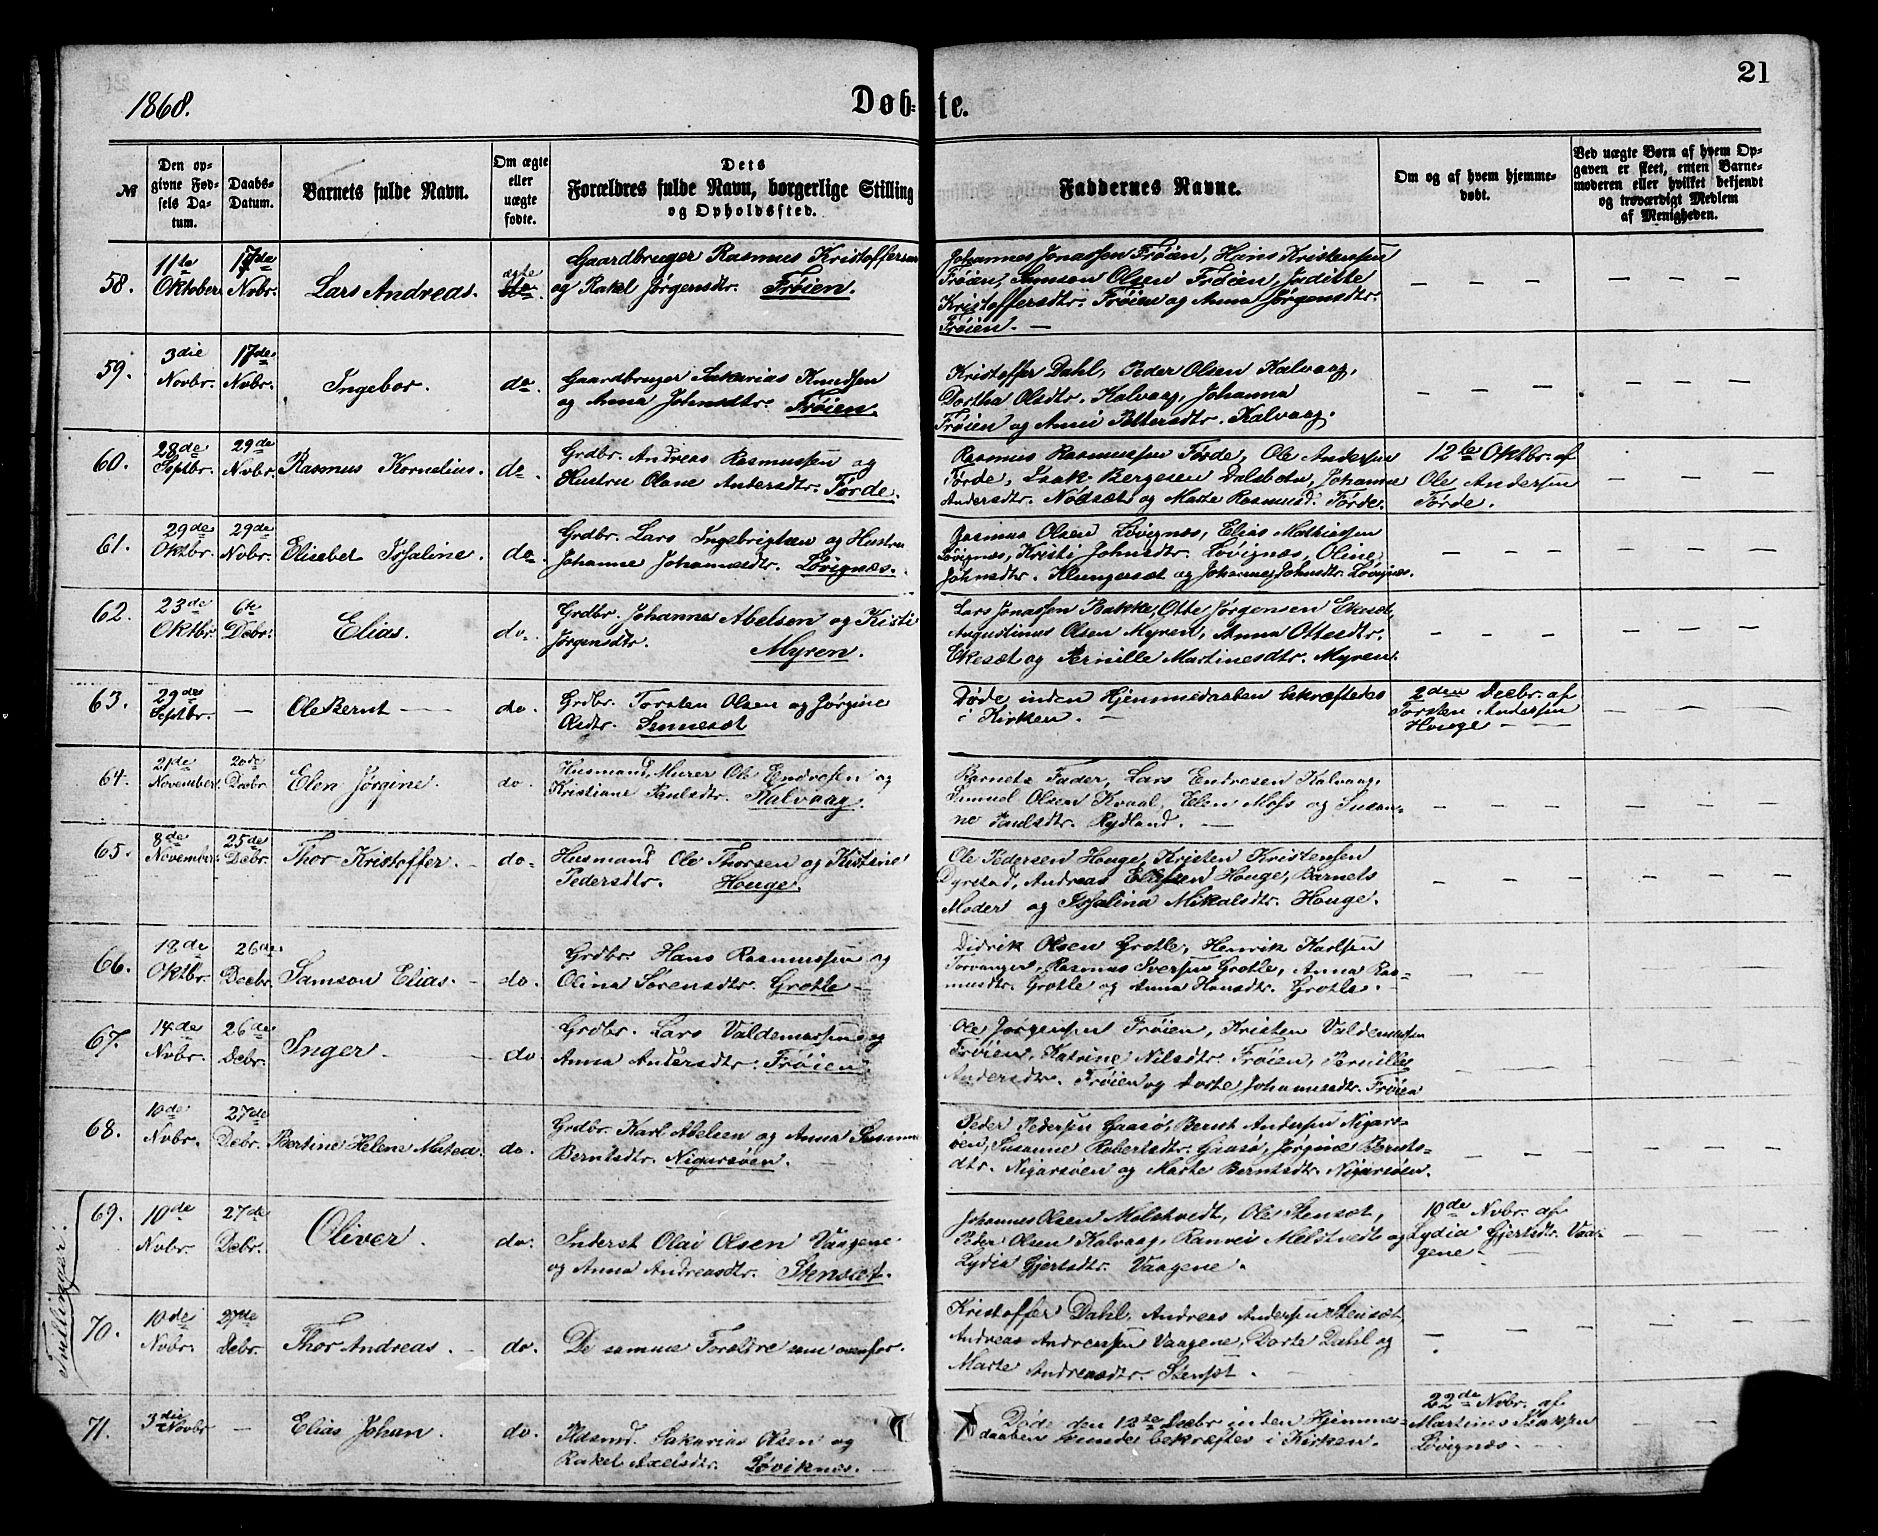 1868.
Døb-
te.
21
№
Den op-
givne Fød-
sels Da-
tum.
Daabs-
Datum.
Barnets fulde Navn.
Om ægte
eller
uægte
fødte.
Dets
Forældres fulde Navn, borgerlige Stilling
og Opholdssted.
Faddernes Navne.
Om og af hvem hjemme-
døbt.
Ved uægte Børn af hvem Op-
gaven er skeet, enten Barne-
moderen eller hvilket bekjendt
og troværdigt Medlem
af Menigheden.
58.
11te
Oktober
17de
Novbr.
Lars Andreas.
ægte
do.
Gaardbruger Rasmus Kristoffersen
og Rakel Jørgensdtr. Frøien.
Johannes Jonassen Frøien, Hans Kristensen
Frøien, Samson Olsen Frøien, Juditte
Kristoffersdtr. Frøien og Anna Jørgensdtr.
Frøien. —
59.
3die
Novbr.
17de
Nvbr.
Ingebor.
do
Gaardbruger Sakarias Knudsen
og Anna Johnsdtr. Frøien.
Kristoffer Dahl, Peder Olsen Kalvaag,
Dortha Olsdtr. Kalvaag, Johanna
Frøien og Anne Pettersdtr. Kalvaag.
60.
28de
Septbr.
29de
Nvbr.
Rasmus Kornelius.
do
Grdbr. Andreas Rasmussen og
Hustru Oline Andersdtr. Førde.
Rasmus Rasmussen Førde, Ole Andersen
Førde, Isak Bergesen Dalsbotn, Johanne
Andersdtr. Nødsæt og Marte Rasmusd. Førde.
12te Oktbr. af
Ole Andersen
Førde.
61.
29de
Oktbr.
29de
Nvbr.
Elisabet Josaline.
do
Grdbr. Lars Ingebrigtsen og Hustru
Johanne Johannesdtr. Løvignæs.
Rasmus Olsen Løvignæs, Elias Mathiassen
Løvignæs, Kristi Johnsdtr. Løvignæs, Oline
Johnsdtr. Klungersæt og Johanne Johnsdtr. Løvignæs.
62.
23de
Oktbr.
6te
Debr.
Elias.
do.
Grdbr. Johannes Abelsen og Kisti
Jørgensdtr. Myren.
Lars Jonassen Bakke, Otte Jørgensen Ekesæt,
Augustinus Olsen Myren, Anna Ottesdtr.
Ekesæt og Pernille Martinesdtr. Myren.
63.
29de
Septbr.
—
Ole Bernt
do.
Grdbr. Torsten Olsen og Jørgine
Olsdtr. Sennesæt
Døde inden Hjemmedaaben bekræftedes
i Kirken. —
2den Decbr. af
Torsten Andersen
Houge
64.
21de
November
20de
Decbr
Elen Jørgine.
do.
Husmand, Murer Ole Endresen og
Kristiane Paulsdtr. Kalvaag.
Barnets Fader, Lars Endresen Kalvaag,
Samuel Olsen Kvaal, Elen Moss og Susan-
ne Paulsdtr. Rydland.
65.
8de
November
25de
Debr
Thor Kristoffer.
do
Husmand Ole Thorsen og Kistine
Pedersdtr. Houge.
Ole Pedersen Houge, Kristen Kristensen
Dyrstad, Andreas Ellefsen Houge, Barnets
Moder og Josalina Mikalsdtr. Houge.
66.
18de
Oktbr.
26de
Decbr.
Samson Elias.
do.
Grdbr. Hans Rasmussen og
Olina Sørensdtr. Grotle
Didrik Olsen Grotle, Henrik Karlsen
Torvanger, Rasmus Iversen Grotle, Anna Ras-
musdtr. Grotle og Anna Hansdtr. Grotle.
67.
14de
Nvbr.
26de
Debr.
Inger
do
Grdbr. Lars Valdemarsen og
Anna Andersdtr. Frøien.
Ole Jørgensen Frøien, Kristen Valdemarsen
Frøien, Katrine Nilsdtr. Frøien, Pernille
Andersdtr. Frøien og Dorte Johannesdtr. Frøien
68.
10de
Nvbr.
27de
Debr.
Bertine Helene Matea.
do.
Grdbr. Karl Abelsen og Anna Susanne
Berntsdtr. Nigarsøen.
Peder Pedersen Gaasø, Bernt Andersen Nigars-
øen, Susanne Robertsdtr. Gaasø, Jørgine Bernts-
dtr. Nigarsøen og Marte Berntsdtr. Nigarsøen.
Tvillinger:
69.
10de
Nvbr.
27de
Debr.
Oliver.
do.
Inderst Olai Olsen Vaagene
og Anna Andreasdtr. Stensæt.
Johannes Olsen Melstvedt, Ole Stensæt,
Peder Olsen Kalvaag, Ranvei Melstvedt og
Lydia Gjertsdtr. Vaagene.
10de Nvbr. af
Lydia Gjertsdtr. Vaa-
gene
70.
10de
Nvbr.
27de
Debr.
Thor Andreas.
do.
De samme Forældre som ovenfor.
Kristoffer Dahl, Andreas Andersen Stensæt,
Andreas Andreassen Vaagene, Dorte Dahl og
Marte Andreasdtr. Stensæt.
71.
3die
Novbr
—
Elias Johan.
do.
Husmd. Sakarias Olsen og
Rakel Axelsdtr. Løviknæs.
Døde den 12te Decbr inden Hjemme-
daaben kunde bekræftes i Kirken.
22de Nvbr. af
Martines Isaksen
Løvignæs.